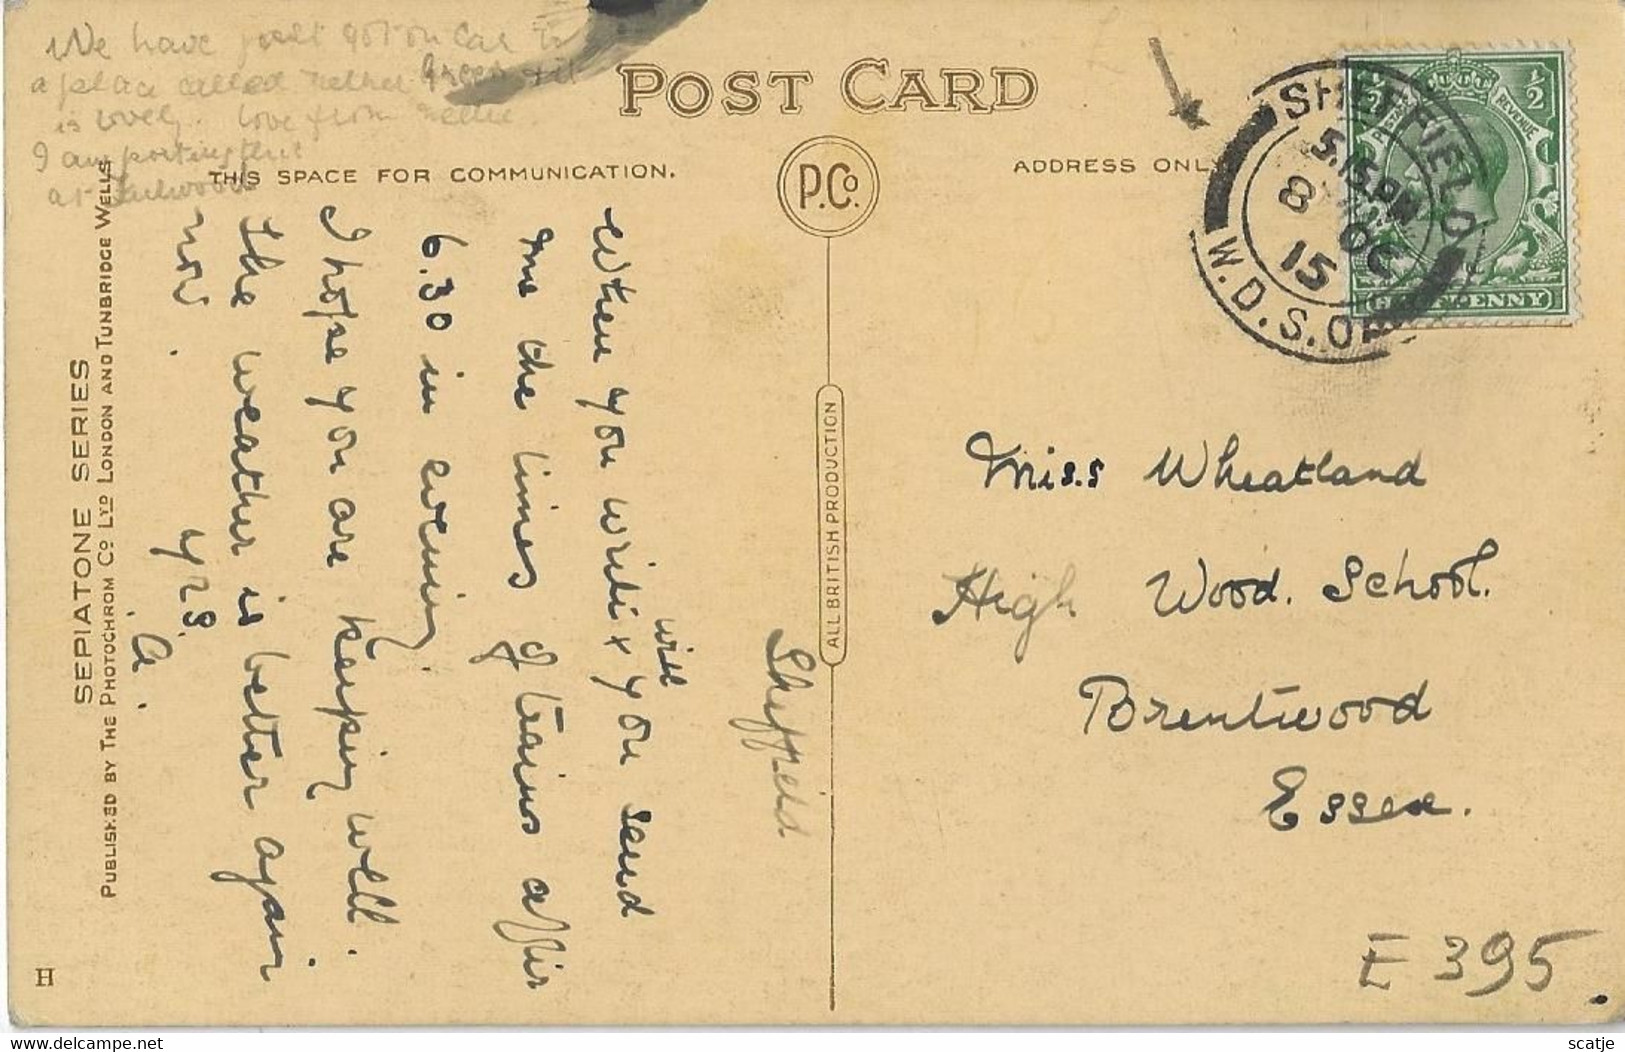 We have just got on car to
a place called nether green & it
is lovely. love from Nellie.
I am posting this
at Fulwood
POST CARD
THIS SPACE FOR COMMUNICATION.
P.Co.
ADDRESS ONL
SHEFFIELD
5.15.PM
8 OC
15
W.D.S.O
HALFPENNY
½
½
REVENUE
When you write you will send
me the times of trains after
6.30 in evening.
I hope you are keeping well.
The weather is better again
now.
yrs.
A.
Sheffield
ALL BRITISH PRODUCTION
SEPIATONE SERIES
PUBLISHED BY THE PHOTOCHROM CO LTD LONDON AND TUNBRIDGE WELLS
H
Miss Wheatland
High Wood. School.
Brentwood
Essex.
E 395.
delcampe.net
scatje